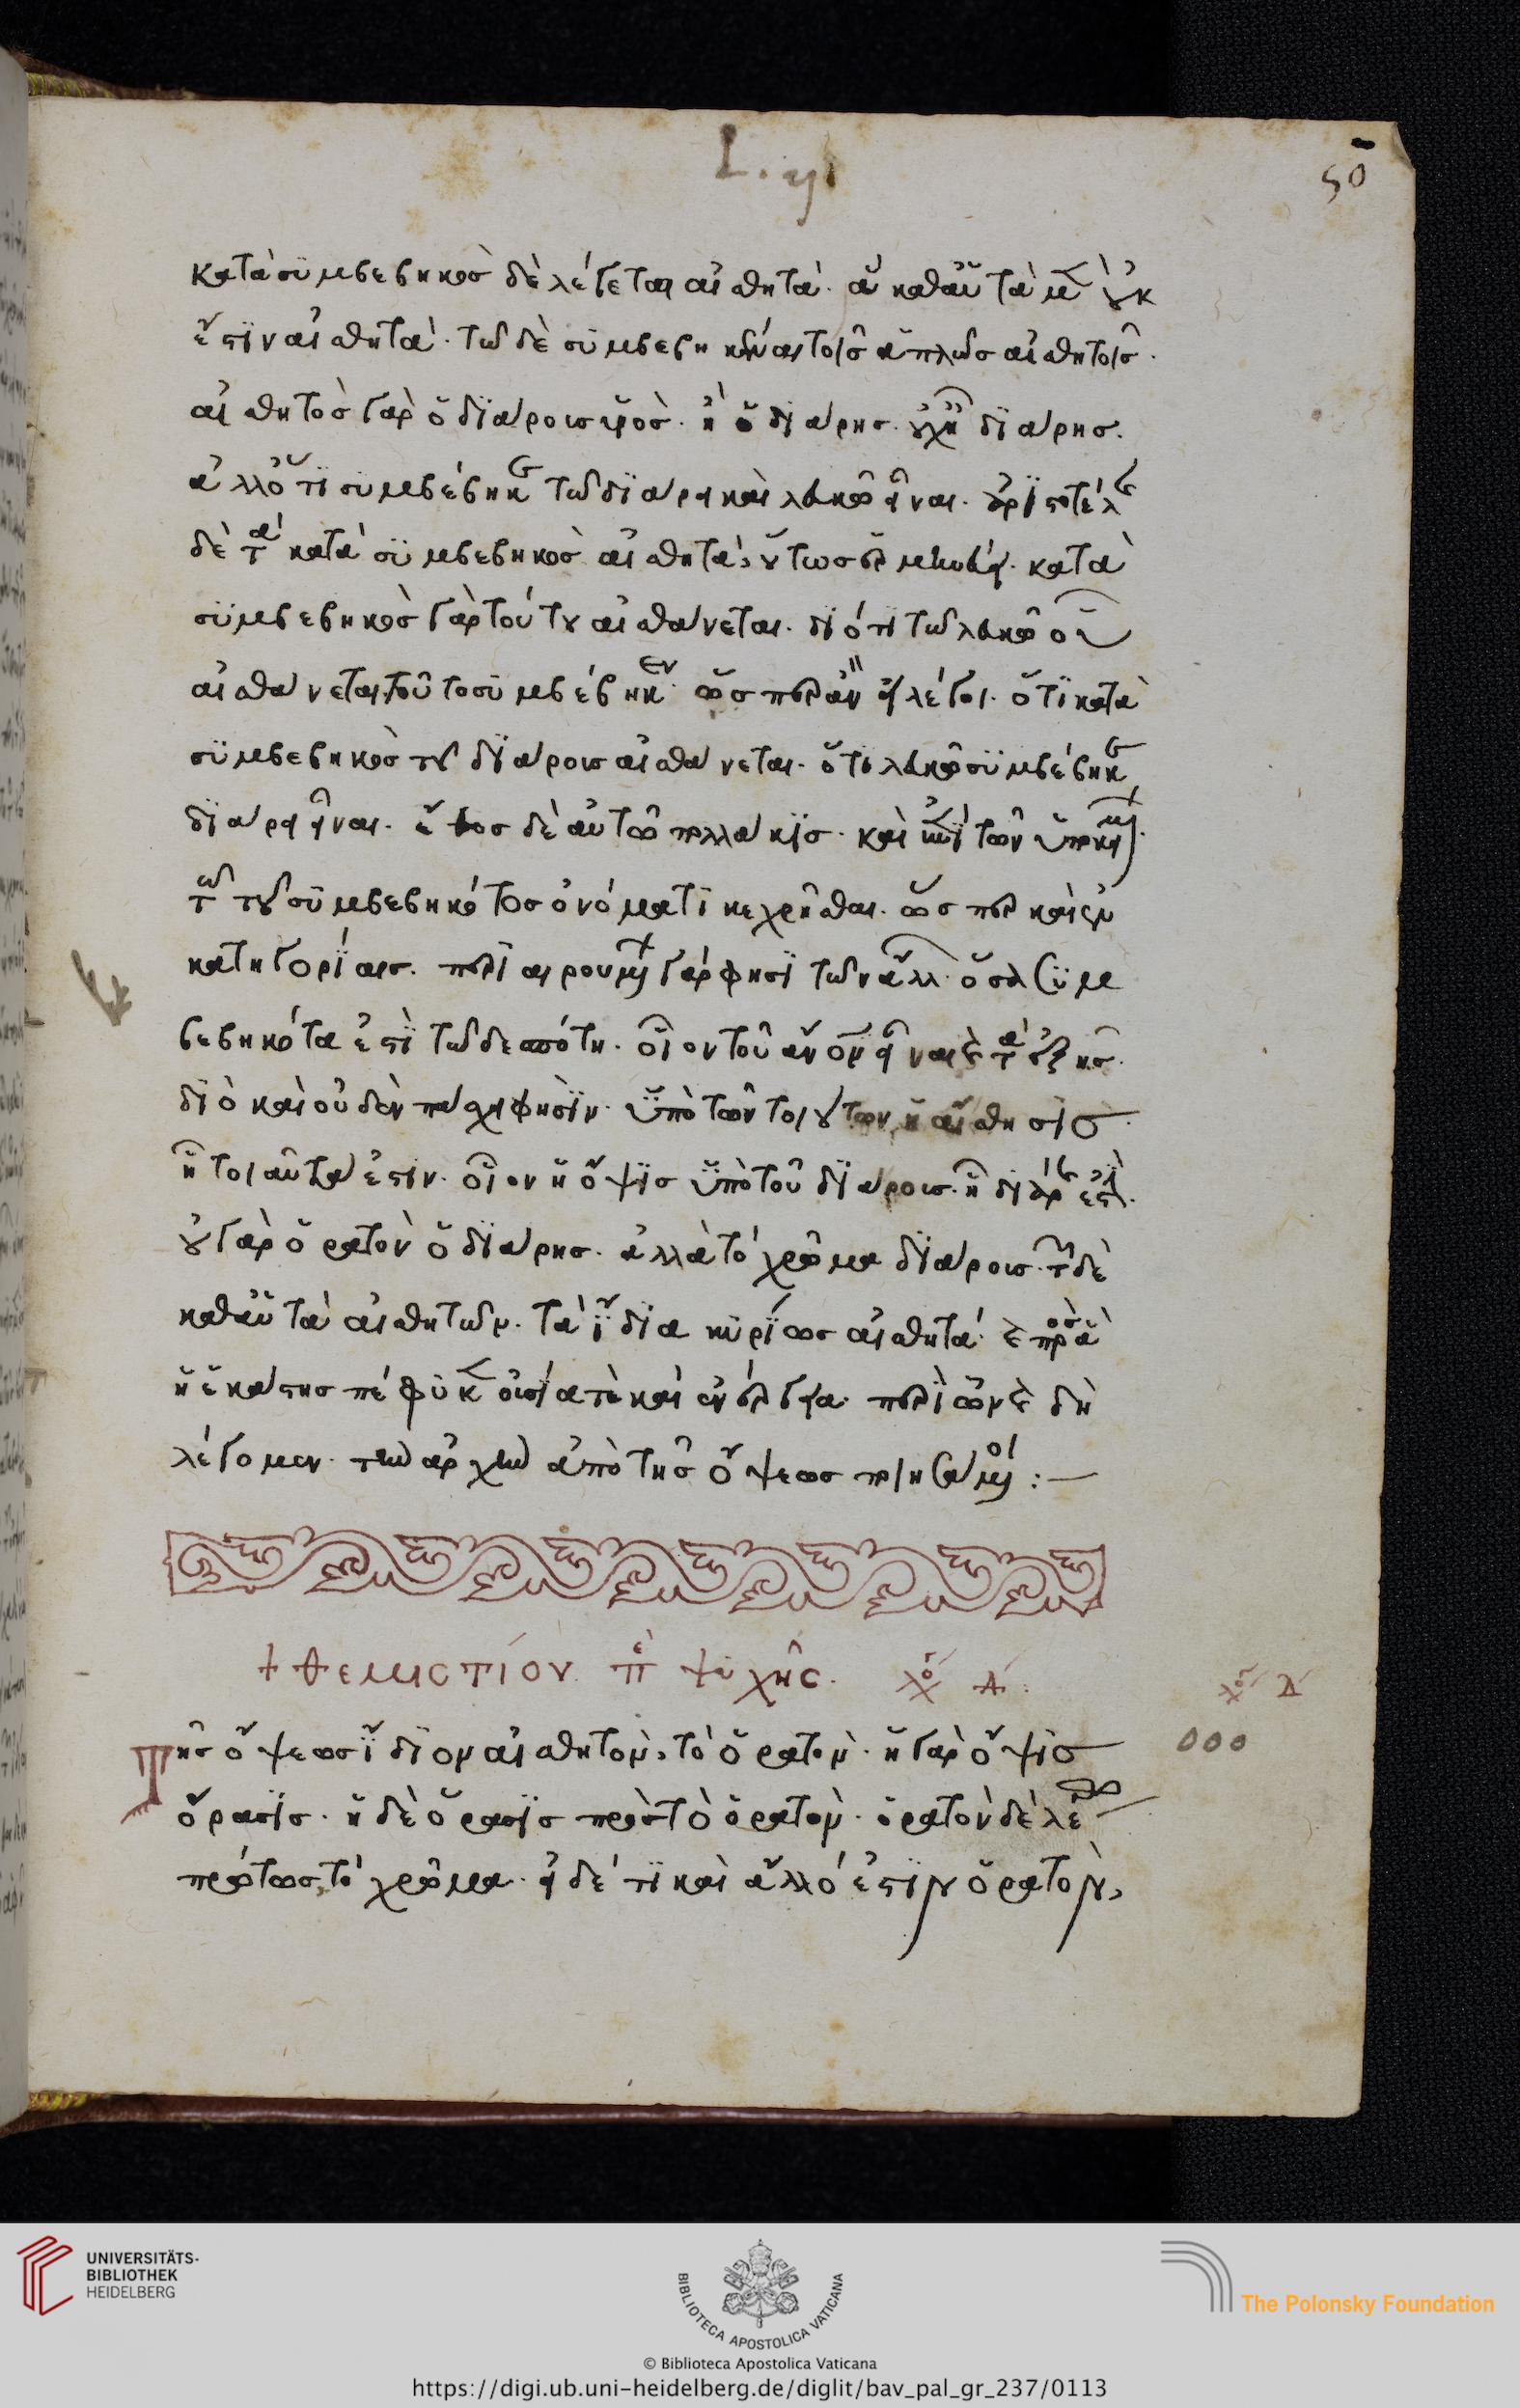 50
κατὰ συμβεβηκὸσ δὲ λέγεται αἰσθητά. ἃ καθ αὑτὰ μὲν οὐκ
ἔστιν αἰσθητά. τῶ δὲ συμβεβηκέναι τοῖσ ἁπλῶσ αἰσθητοῖσ.
αἰσθητὸσ γὰρ ὁ διάρουσ ὑιὸσ. ἢ ὁ διάρησ. οὐχ ἧ διάρησ.
ἀλλ ὅτι συμβέβηκε τῶ διάρει καὶ λευκῶ εἶναι. ἀριστοτέλησ
δὲ τὰ κατὰ συμβεβηκὸσ αἰσθητά, οὕτωσ ἑρμηνεύει. κατὰ
συμβεβηκὸσ γὰρ τούτου αἰσθάνεται. διότι τῶ λευκῶ οὗ
αἰσθάνεται τοῦτο συμβέβηκεν. ὥσπερ ἂν εἰ λέγοι. ὅτι κατὰ
συμβεβηκὸσ τοῦ διάρουσ αἰσθάνεται. ὅτι λευκῶ συμβέβηκε
διάρει εἶναι. ἔθοσ δὲ αὐτῶ πολλάκισ. καὶ ἐπὶ τῶν ὑποκειμένων
τῶ τοῦ συμβεβηκότοσ ὀνόματι κεχρῆσθαι. ὥσπερ καὶ ἐν
κατηγορίαισ. περιαιρουμένων γάρ φησι τῶν ἄλλων ὅσα συμ
βεβηκότα ἐστὶ τῶ δεσπότη. οἷον τοῦ ἀνθρώπου εἶναι καὶ τὰ ἑξῆσ.
διὸ καὶ οὐδὲν πάσχει φησὶν. ὑπὸ τῶν τοιούτων ἡ αἴσθησισ
ἧ τοιαῦτα ἐστιν. οἷον ἡ ὄψισ ὑπὸ τοῦ διάρουσ. ἧ διάρησ ἐστί.
οὐ γὰρ ὁρατὸν ὁ διάρησ. ἀλλὰ τὸ χρῶμα διάρουσ. τῶν δὲ
καθ αὑτὰ αἰσθητῶν. τὰ ἴδια κυρίωσ αἰσθητά. καὶ πρὸσ ἃ
ἡ ἑκάστησ πέφυκεν οὐσία τε καὶ ἐνέργεια. περὶ ὧν καὶ δὴ
λέγομεν. τὴν ἀρχὴν ἀπὸ τῆσ ὄψεωσ ποιησάμενοι :—
+ θεμιστίου πε ψυχῆς. λο Δ.
λο Δ
Τῆσ ὄψεωσ ἴδιον αἰσθητὸν, τὸ ὁρατὸν. ἡ γὰρ ὄψισ
ὅρασισ. ἡ δὲ ὅρασισ πρὸσ τὸ ὁρατὸν. ὁρατὸν δὲ λέγεται
πρώτωσ, τὸ χρῶμα. εἰ δέ τι καὶ ἄλλό ἐστιν ὁρατὸν,
UNIVERSITÄTS-
BIBLIOTHEK
HEIDELBERG
BIBLIOTECA APOSTOLICA VATICANA
The Polonsky Foundation
© Biblioteca Apostolica Vaticana
https://digi.ub.uni-heidelberg.de/diglit/bav_pal_gr_237/0113